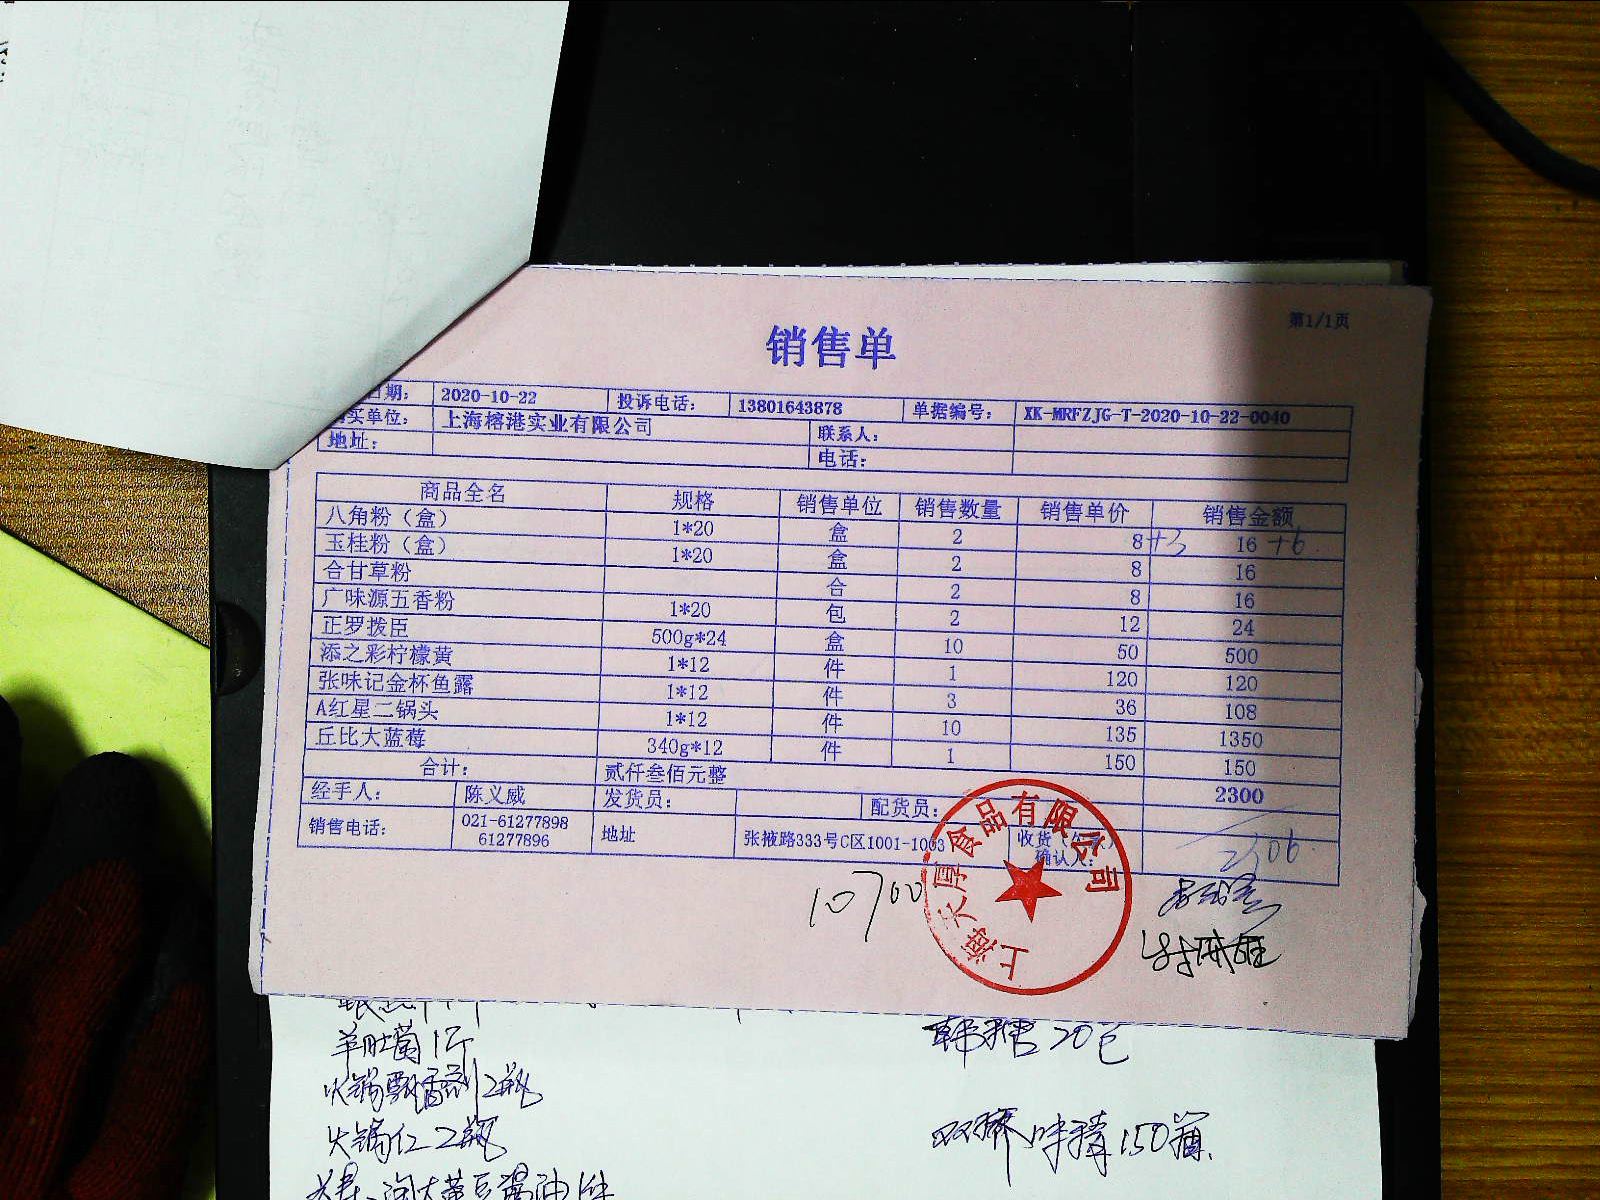 销售单
第1/1页
日期： 2020-10-22 投诉电话： 13801643878 单据编号： XK-MRFZJG-T-2020-10-22-0040
买单位： 上海榕港实业有限公司 联系人：
地址： 电话：
商品全名 规格 销售单位 销售数量 销售单价 销售金额
八角粉（盒） 1*20 盒 2 8+3 16 +6
玉桂粉（盒） 1*20 盒 2 8 16
合甘草粉 合 2 8 16
广味源五香粉 1*20 包 2 12 24
正罗拨臣 500g*24 盒 10 50 500
添之彩柠檬黄 1*12 件 1 120 120
张味记金杯鱼露 1*12 件 3 36 108
A红星二锅头 1*12 件 10 135 1350
丘比大蓝莓 340g*12 件 1 150 150
合计： 贰仟叁佰元整 2300
经手人： 陈义威 发货员： 配货员：
销售电话： 021-61277898 61277896 地址 张掖路333号C区1001-1003 收货 确认人： 2306
10700
上海天厚食品有限公司
羊肚菌1斤
火锅飘香剂2瓶
韩糖20包
火锅红2瓶
双桥味精150箱